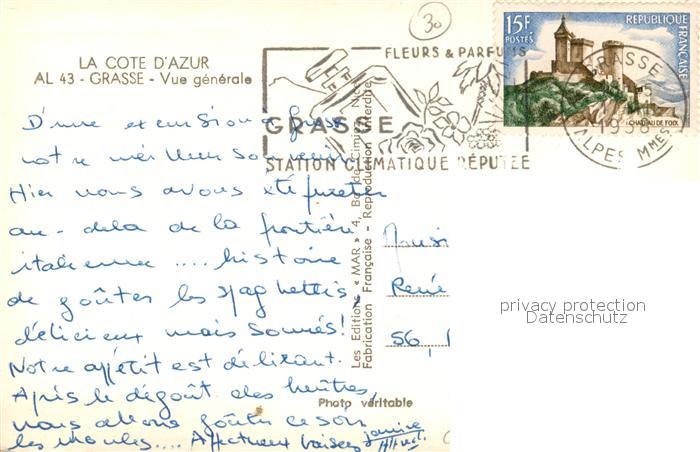 30
LA COTE D'AZUR
AL 43 - GRASSE - Vue générale
FLEURS & PARFUMS
GRASSE
STATION CLIMATIQUE RÉPUTÉE
15F
POSTES
REPUBLIQUE FRANÇAISE
CHATEAU DE FOIX
GRASSE
1958
ALPES MMES
D'une excursion à Grasse
notre meilleur souvenir
Hier nous avons été fureter
au-delà de la frontière
italienne .... histoire
de goûter les spaghettis,
délicieux mais
Notre appétit est délirant.
Après le dégoût des huîtres,
nous allons goûter ce soir
les moules.... Affectueux baisers
Janine
Les Editions « MAR » 4, Bd de Cimiez, Nice
Fabrication Française - Reproduction Interdite
Photo véritable
Monsi
René
56,
privacy protection
Datenschutz